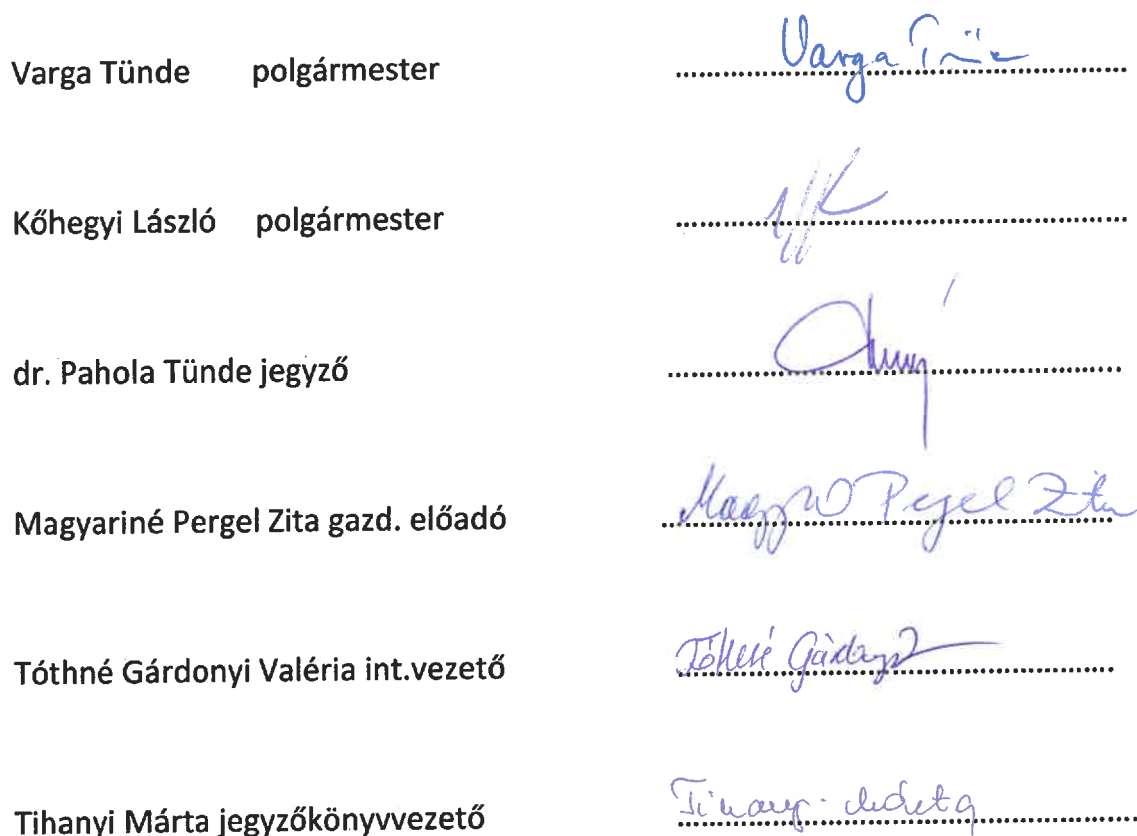 Varga Tünde polgármester Varga Tünde
Kőhegyi László polgármester
dr. Pahola Tünde jegyző
Magyariné Pergel Zita gazd. előadó Pergel Zita
Tóthné Gárdonyi Valéria int.vezető Tóthné Gárdonyi
Tihanyi Márta jegyzőkönyvvezető Tihanyi Márta